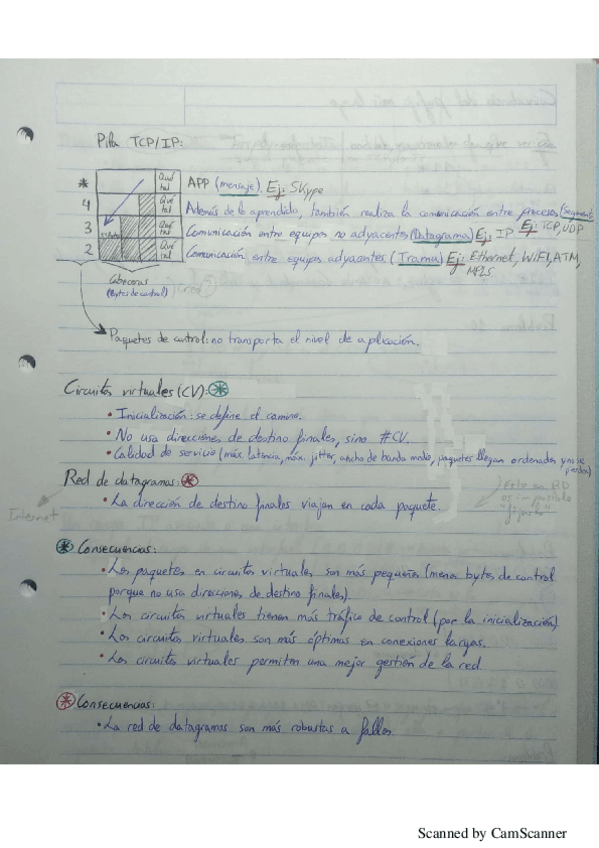 Pila TCP/IP:
* Qué tal APP (mensaje). Ej: Skype
4 Qué tal Además de lo aprendido, también realiza la comunicación entre procesos (Segmento) Ej: TCP, UDP
3 Qué tal Comunicación entre equipos no adyacentes (Datagrama) Ej: IP
2 Qué tal Comunicación entre equipos adyacentes (Trama) Ej: Ethernet, WiFi, ATM, MPLS.
Cabeceras
(Bytes de control)
Paquetes de control: no transporta el nivel de aplicación.
Circuitos virtuales (CV): *
• Inicialización: se define el camino.
• No usa direcciones de destino finales, sino #CV.
• Calidad de servicio (máx. latencia, máx. jitter, ancho de banda medio, paquetes llegan ordenados y no se pierden)
Red de datagramas: *
Esto en RD
es imposible
"fijarlo"
Internet
• La dirección de destino finales viajan en cada paquete.
* Consecuencias:
• Los paquetes en circuitos virtuales son más pequeños (menos bytes de control
porque no usa direciones de destino finales).
• Los circuitos virtuales tienen más tráfico de control (por la inicialización)
• Los circuitos virtuales son más óptimas en conexiones largas.
• Los circuitos virtuales permiten una mejor gestión de la red.
* Consecuencias:
• La red de datagramas son más robustas a fallos.
Scanned by CamScanner